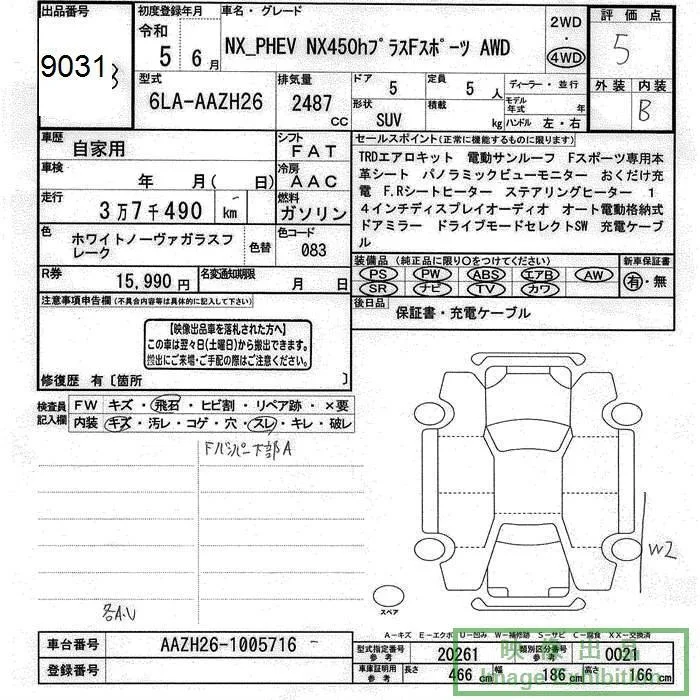 出品番号
9031
3
初度登録年月
令和
5 6月
車名・グレード
NX_PHEV NX450hプラスFスポーツ AWD
2WD
・
4WD
評価点
5
型式
6LA-AAZH26
排気量
2487
CC
ドア
5
定員
5 人
ディーラー・並行
形状
SUV
積載
kg
モデル年式
年
ハンドル 左・右
外装 内装
B
車歴
自家用
シフト
FAT
車検
年 月( 日)
冷房
AAC
走行
3万7千490 km
燃料
ガソリン
色
ホワイトノーヴァガラスフレーク
色替
色コード
083
R券
15,990円
名変通知期限
月 日
セールスポイント(正常に機能するものに限ります)
TRDエアロキット 電動サンルーフ Fスポーツ専用本
革シート パノラミックビューモニター おくだけ充
電 F.Rシートヒーター ステアリングヒーター 1
4インチディスプレイオーディオ オート電動格納式
ドアミラー ドライブモードセレクトSW 充電ケーブ
ル
装備品(純正品に限り○をつけてください)
PS PW ABS エアB AW
SR ナビ TV カワ
新車保証書
有・無
後日品
保証書・充電ケーブル
注意事項申告欄(不具合内容等は具体的に記入して下さい)
【映像出品車を落札された方へ】
この車は翌々日(土曜日)から搬出できます。
搬出にご来場・ご手配の際はご注意ください。
修復歴 有〔箇所 〕
検査員記入欄
FW キズ・飛石・ヒビ割・リペア跡・×要
内装 キズ・汚レ・コゲ・穴・スレ・キレ・破レ
Fバンパー下部A
各A・U
W2
スペア
A-キズ E-エクボ U-凹み W-補修跡 S-サビ C-腐食 XX-交換済
車台番号
AAZH26-1005716
登録番号
型式指定番号
参考
20261
類別区分番号
参考
0021
車庫証明用
参考
長さ
466 cm
幅
186 cm
高さ
166 cm
映像出品
Image Exhibition